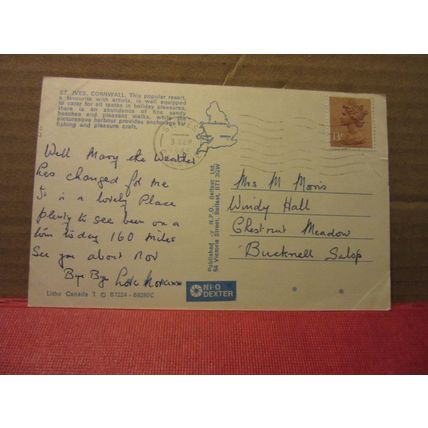 ST. IVES, CORNWALL. This popular resort,
a favourite with artists, is well equipped
to cater for all tastes in holiday pleasures,
there is an abundance of fine sandy
beaches and pleasant walks, while the
picturesque harbour provides anchorage for
fishing and pleasure craft.
Well Mary the Weather
has changed for me
It is a lovely Place
plenty to see been on a
tour today 160 miles
See you about Nov
Bye Bye
Litho Canada T © B7224 - 69280C
Published by N.P.O. Belfast Ltd.
54 Victoria Street, Belfast, BT1 3GW
NPO
DEXTER
Mrs M Morris
Windy Hall
Chestnut Meadow
Bucknell Salop